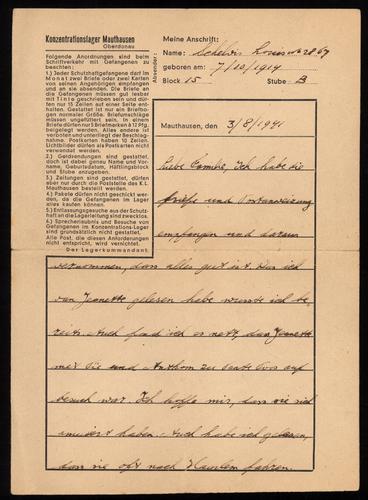 Konzentrationslager Mauthausen
Oberdonau
Folgende Anordnungen sind beim
Schriftverkehr mit Gefangenen zu
beachten:
1.) Jeder Schutzhaftgefangene darf im
Monat zwei Briefe oder zwei Karten
von seinen Angehörigen empfangen
und an sie absenden. Die Briefe an
die Gefangenen müssen gut lesbar
mit Tinte geschrieben sein und dür-
fen nur 15 Zeilen auf einer Seite ent-
halten. Gestattet ist nur ein Briefbo-
gen normaler Größe. Briefumschläge
müssen ungefüttert sein. In einem
Briefe dürfen nur 5 Briefmarken à 12 Pfg.
beigelegt werden. Alles andere ist
verboten und unterliegt der Beschlag-
nahme. Postkarten haben 10 Zeilen.
Lichtbilder dürfen als Postkarten nicht
verwendet werden.
2.) Geldsendungen sind gestattet,
doch ist dabei genau Name und Vor-
name, Geburtsdatum, Häftlingsblock
und Stube anzugeben.
3.) Zeitungen sind gestattet, dürfen
aber nur durch die Poststelle des K.L.
Mauthausen bestellt werden.
4.) Pakete dürfen nicht geschickt wer-
den, da die Gefangenen im Lager
alles kaufen können.
5.) Entlassungsgesuche aus der Schutz-
haft an die Lagerleitung sind zwecklos.
6.) Sprecherlaubnis und Besuche von
Gefangenen im Konzentrations-Lager
sind grundsätzlich nicht gestattet.
Alle Post, die diesen Anforderungen
nicht entspricht, wird vernichtet.
Der Lagerkommandant.
Absender:
Meine Anschrift:
Name: Louis
geboren am: 7/10/1914
Block 15 Stube B
Mauthausen, den 3/8/1941
Liebe Familie, Ich habe die
Briefe und Postanweisung
empfangen und daraus
vernommen, dass alles gut ist. Das ich
von Jeanette gelesen habe wusste ich be-
reits. Auch find ich es nett, das Jeanette
met und zu auf
besuch war. Ich hoffe mir, dass sie sich
amusiert haben. Auch habe ich gelesen,
dass sie oft nach Haarlem fahren.